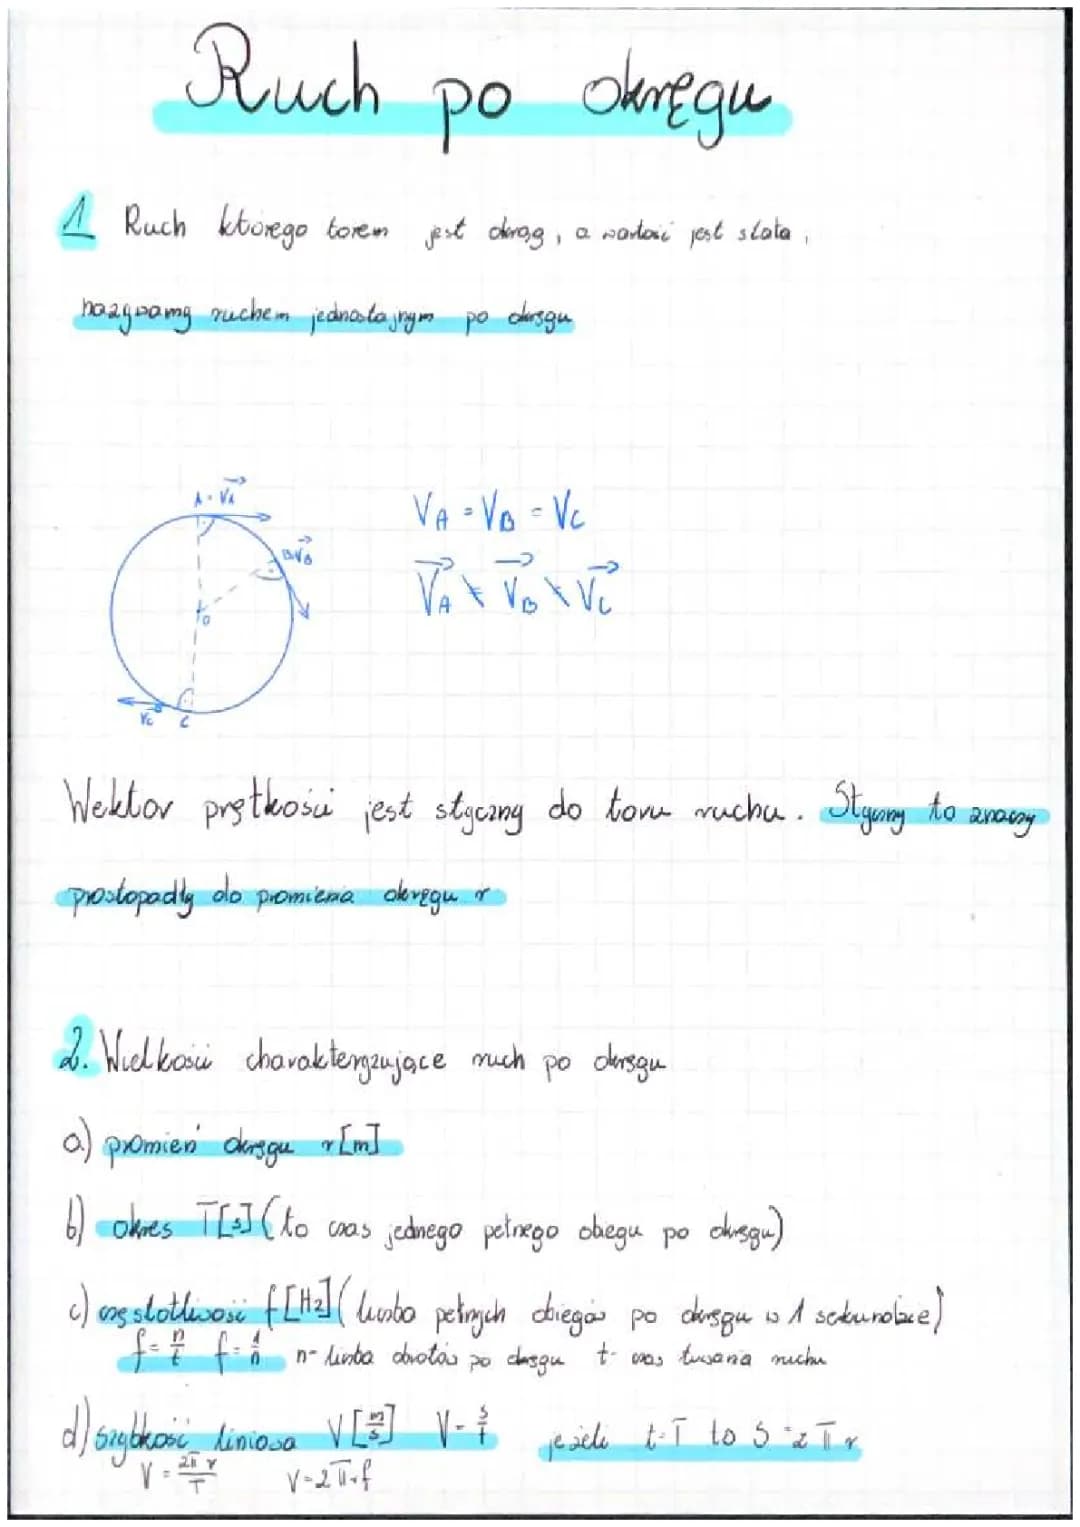 Ruch po okręgu
1 Ruch którego torem jest okrąg, a wartość jest stała,
nazywamy ruchem jednostajnym po okręgu
A = V⃗A
B V⃗B
O
V⃗C C
VA = VB = VC
V⃗A ≠ V⃗B ≠ V⃗C
Wektor prętkości jest styczny do toru ruchu. Styczny to znaczy
prostopadły do promienia okręgu r
2. Wielkości charakteryzujące ruch po okręgu
a) promień okręgu r[m]
b) okres T[s] (to czas jednego pełnego obiegu po okręgu)
c) częstotliwość f[Hz] (liczba pełnych obiegów po okręgu w 1 sekundzie)
f = n/t f = 1/n n - liczba obrotów po okręgu t - czas trwania ruchu
d) szybkość liniowa V[m/s] V = s/t jeżeli t = T to S = 2πr
V = 2πr/T V = 2πrf